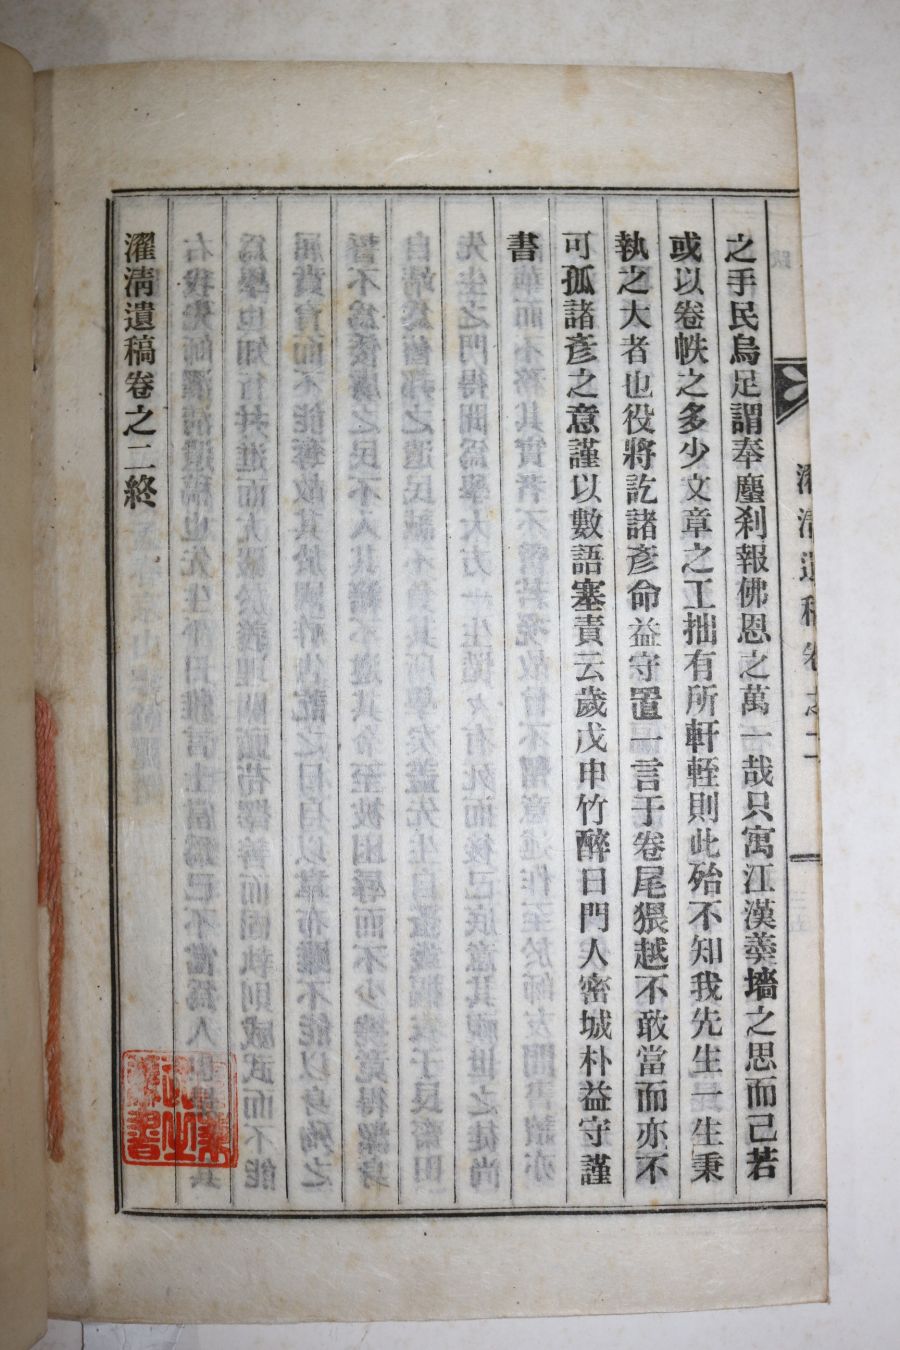 濯清遺稿卷之二
之手民烏足謂奉塵刹報佛恩之萬一哉只寓江漢羹墻之思而已若
或以卷帙之多少文章之工拙有所軒輊則此殆不知我先生一生秉
執之大者也役將訖諸彦命益守置一言于卷尾猥越不敢當而亦不
可孤諸彦之意謹以數語塞責云歲戊申竹醉日門人密城朴益守謹
書
濯清遺稿卷之二終